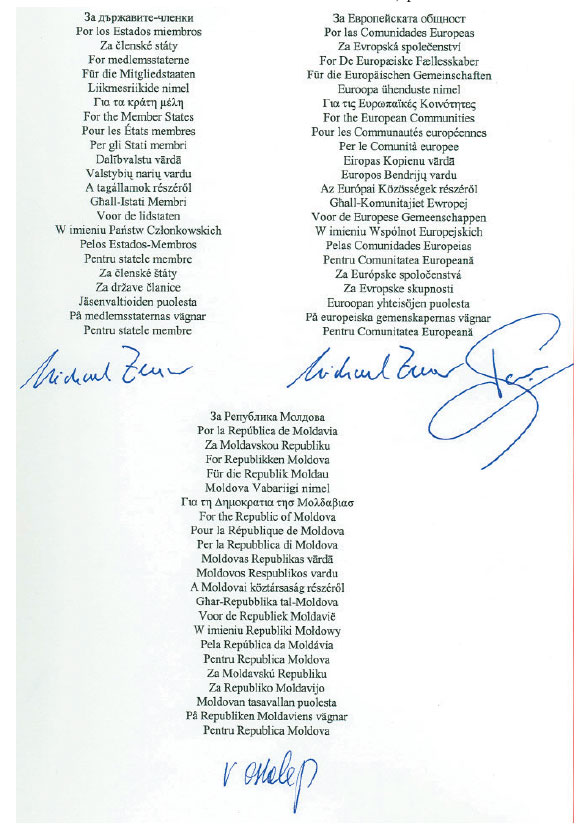 За държавите-членки
Por los Estados miembros
Za členské státy
For medlemsstaterne
Für die Mitgliedstaaten
Liikmesriikide nimel
Για τα κράτη μέλη
For the Member States
Pour les États membres
Per gli Stati membri
Dalībvalstu vārdā
Valstybių narių vardu
A tagállamok részéről
Għall-Istati Membri
Voor de lidstaten
W imieniu Państw Członkowskich
Pelos Estados-Membros
Pentru statele membre
Za členské štáty
Za države članice
Jäsenvaltioiden puolesta
På medlemsstaternas vägnar
Pentru statele membre
За Европейската общност
Por las Comunidades Europeas
Za Evropská společenství
For De Europæiske Fællesskaber
Für die Europäischen Gemeinschaften
Euroopa ühenduste nimel
Για τις Ευρωπαϊκές Κοινότητες
For the European Communities
Pour les Communautés européennes
Per le Comunità europee
Eiropas Kopienu vārdā
Europos Bendrijų vardu
Az Európai Közösségek részéről
Għall-Komunitajiet Ewropej
Voor de Europese Gemeenschappen
W imieniu Wspólnot Europejskich
Pelas Comunidades Europeias
Pentru Comunitatea Europeană
Za Európske spoločenstvá
Za Evropske skupnosti
Euroopan yhteisöjen puolesta
På europeiska gemenskapernas vägnar
Pentru Comunitatea Europeană
Michael
Michael
За Република Молдова
Por la República de Moldavia
Za Moldavskou Republiku
For Republikken Moldova
Für die Republik Moldau
Moldova Vabariigi nimel
Για τη Δημοκρατια τησ Μολδαβιασ
For the Republic of Moldova
Pour la République de Moldova
Per la Repubblica di Moldova
Moldovas Republikas vārdā
Moldovos Respublikos vardu
A Moldovai köztársaság részéről
Għar-Repubblika tal-Moldova
Voor de Republiek Moldavië
W imieniu Republiki Mołdowy
Pela República da Moldávia
Pentru Republica Moldova
Za Moldavskú Republiku
Za Republiko Moldavijo
Moldovan tasavallan puolesta
På Republiken Moldaviens vägnar
Pentru Republica Moldova